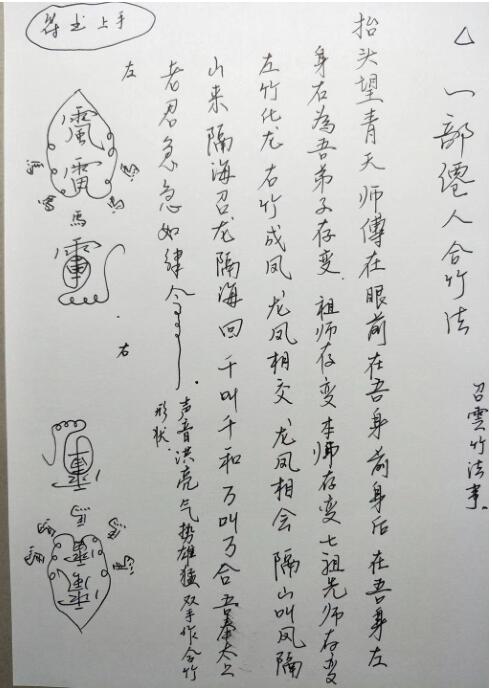 △ 一部僊人合竹法
召雲竹法事
抬头望青天师傅在眼前在吾身前身后在吾身左
身右為吾弟子存变 祖师存变本师存变七祖先师存变
左竹化龙右竹成凤 龙凤相交 龙凤相会 隔山叫凤隔
山来隔海召龙隔海回 千叫千和万叫万合吾奉太上
老君急急如律令
声音洪亮气势雄猛双手作合竹
形状
符书上手
左
右